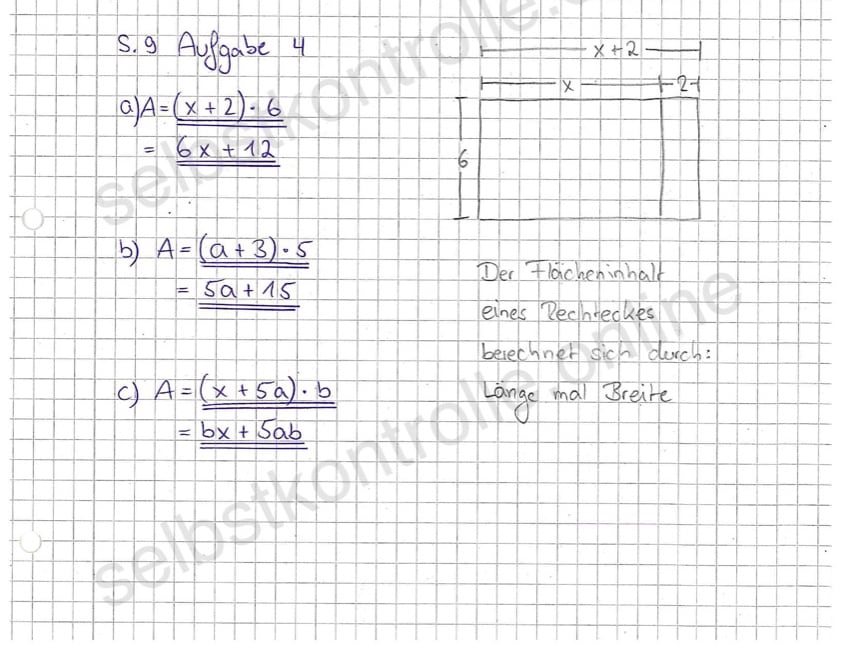 S. 9 Aufgabe 4
a) A = (x + 2) · 6
= 6x + 12
b) A = (a + 3) · 5
= 5a + 15
c) A = (x + 5a) · b
= bx + 5ab
x + 2
x
2
6
Der Flächeninhalt
eines Rechteckes
berechnet sich durch:
Länge mal Breite
selbstkontrolle.online
selbstkontrolle.online